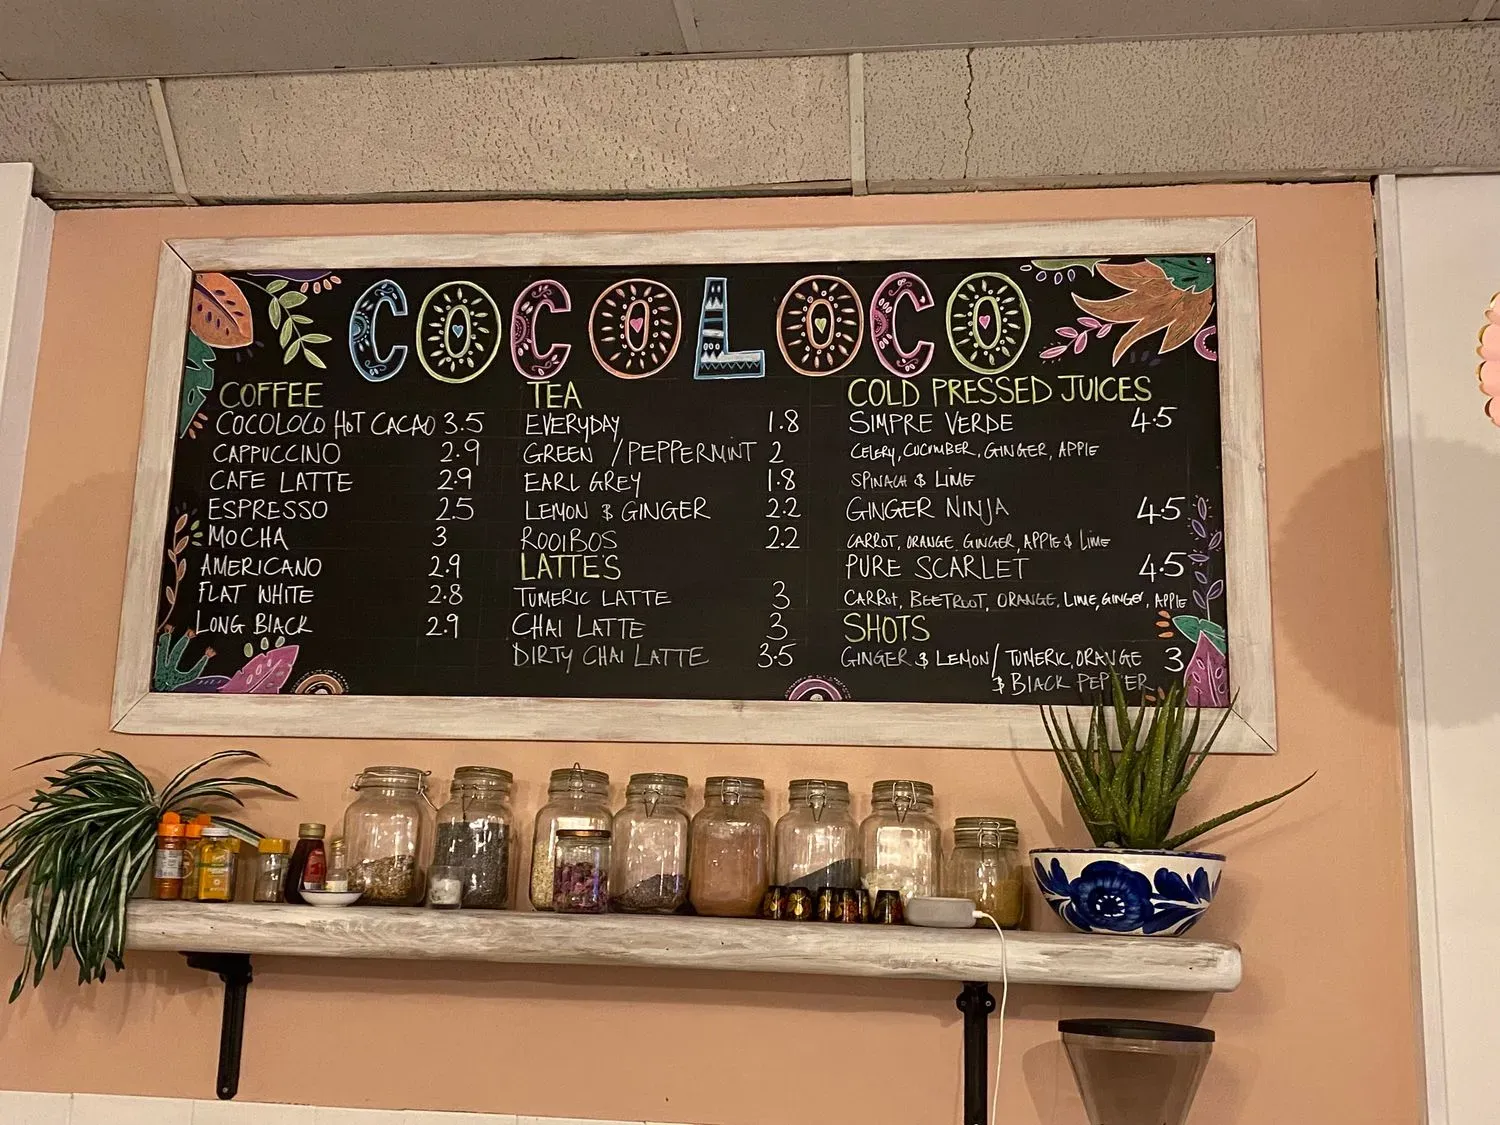 COCOLOCO
COFFEE
COCOLOCO HOT CACAO 3.5
CAPPUCCINO 2.9
CAFE LATTE 2.9
ESPRESSO 2.5
MOCHA 3
AMERICANO 2.9
FLAT WHITE 2.8
LONG BLACK 2.9
TEA
EVERYDAY 1.8
GREEN / PEPPERMINT 2
EARL GREY 1.8
LEMON & GINGER 2.2
ROOIBOS 2.2
LATTE'S
TUMERIC LATTE 3
CHAI LATTE 3
DIRTY CHAI LATTE 3.5
COLD PRESSED JUICES
SIMPRE VERDE 4.5
CELERY, CUCUMBER, GINGER, APPLE
SPINACH & LIME
GINGER NINJA 4.5
CARROT, ORANGE, GINGER, APPLE & LIME
PURE SCARLET 4.5
CARROT, BEETROOT, ORANGE, LIME, GINGER, APPLE
SHOTS
GINGER & LEMON / TUMERIC, ORANGE 3
& BLACK PEPPER